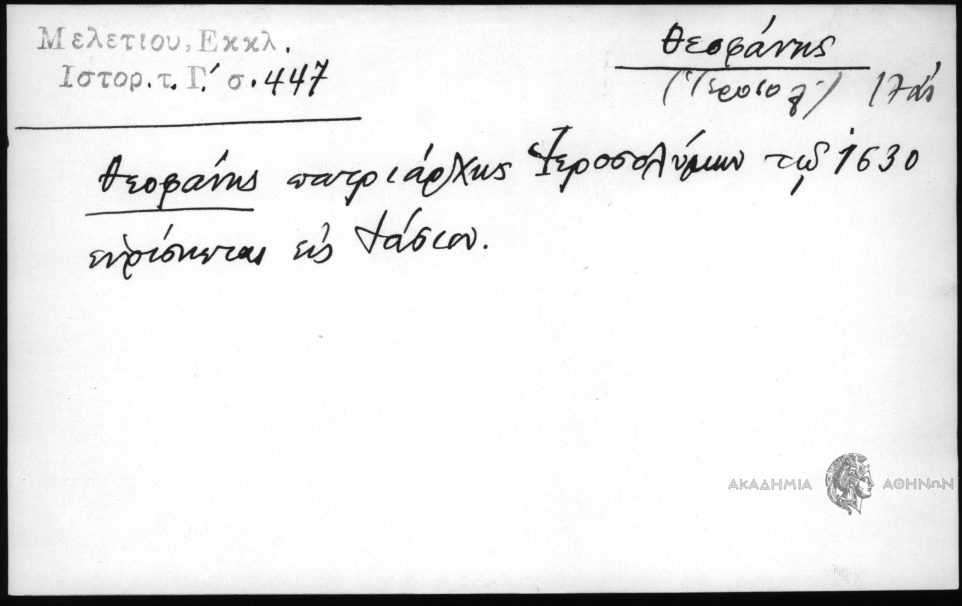 Μελετίου, Εκκλ.
Ιστορ. τ. Γ.́ σ. 447
Θεοφάνης
(Ἱεροσολ) 17ος
Θεοφάνης πατριάρχης Ἱεροσολύμων τῷ 1630
εὑρίσκεται εἰς Ἰάσιον.
ΑΚΑΔΗΜΙΑ ΑΘΗΝΩΝ